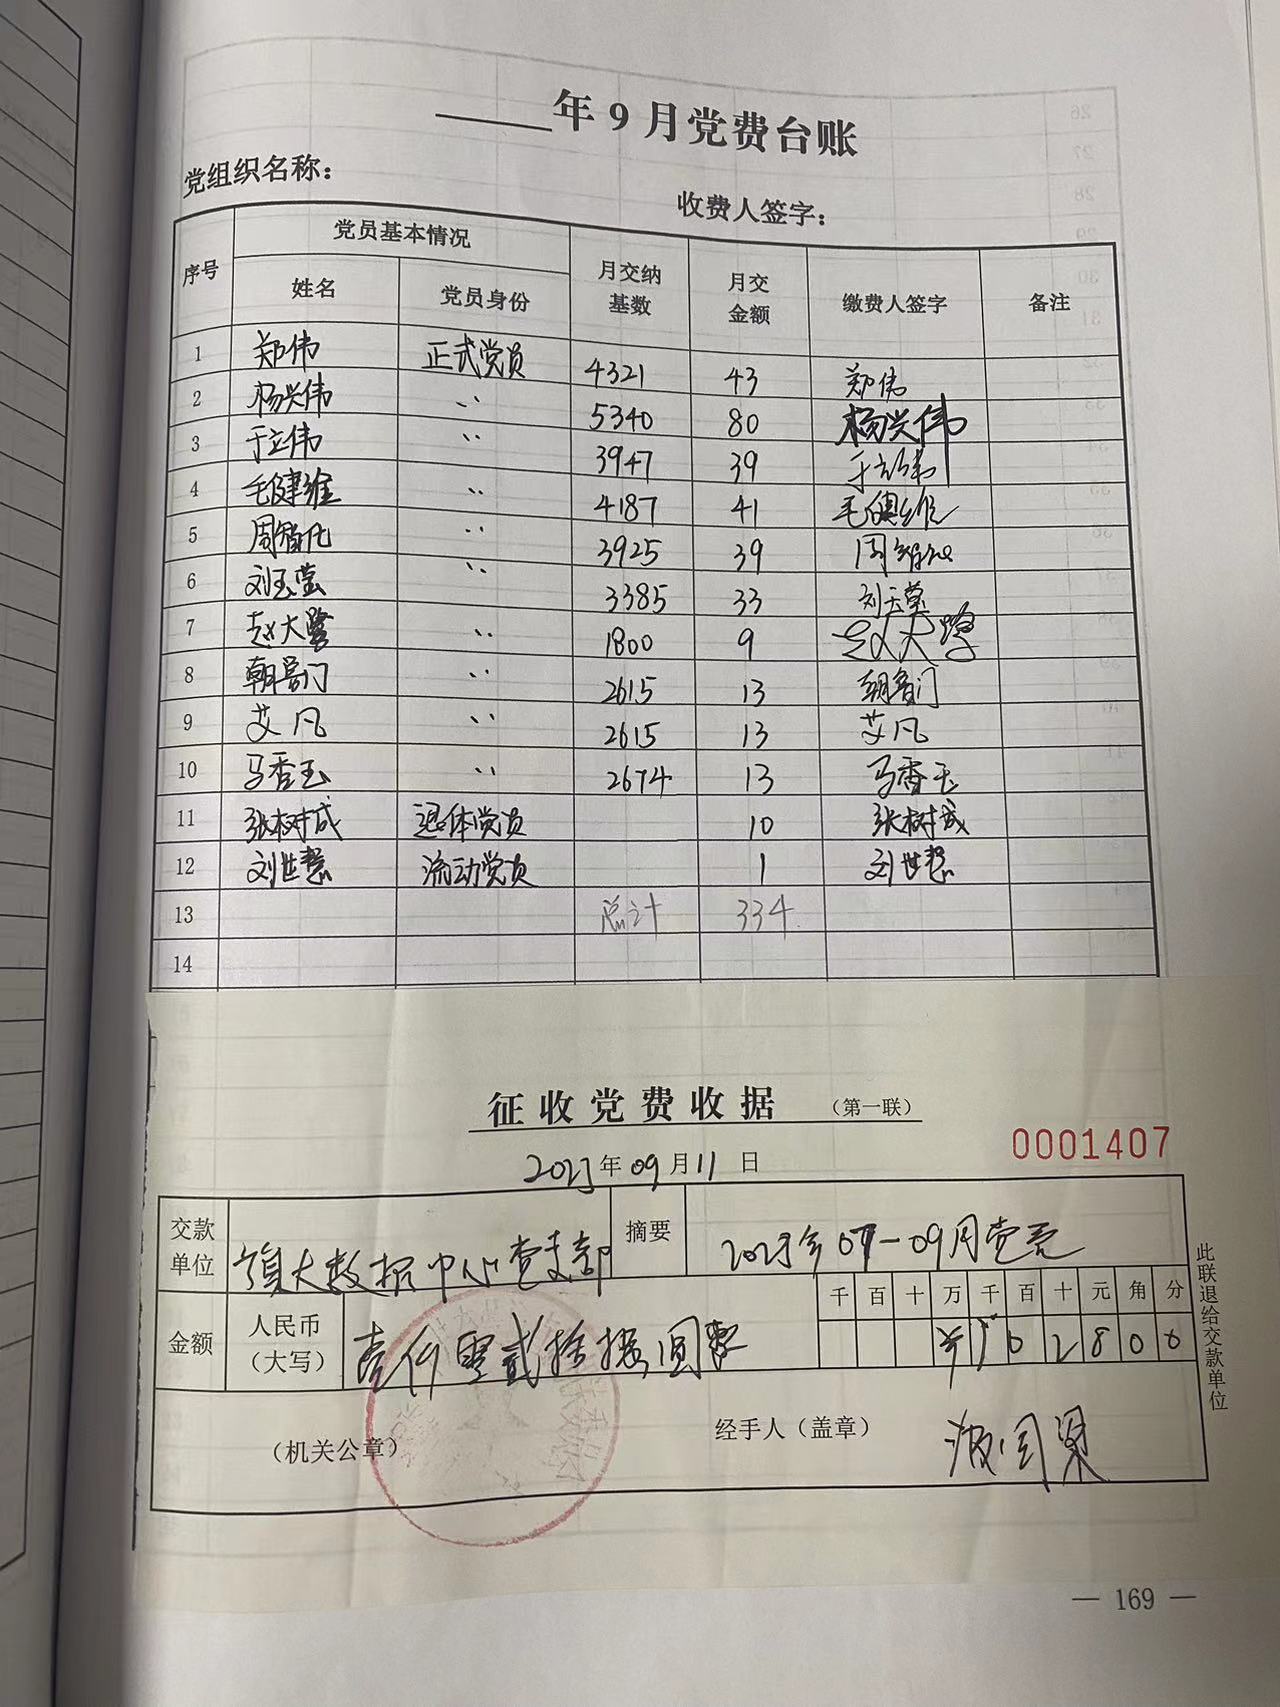 年9月党费台账
党组织名称：
收费人签字：
序号 党员基本情况 月交纳基数 月交金额 缴费人签字 备注
姓名 党员身份
1 郑伟 正式党员 4321 43 郑伟
2 杨兴伟 〃 5340 80 杨兴伟
3 于立伟 〃 3947 39 于立伟
4 毛健维 〃 4187 41 毛健维
5 周智化 〃 3925 39 周智化
6 刘玉莹 〃 3385 33 刘玉莹
7 赵大鹭 〃 1800 9 赵大
8 朝鲁门 〃 2615 13 朝鲁门
9 艾凡 〃 2615 13 艾凡
10 马香玉 〃 2674 13 马香玉
11 张树成 退休党员 10 张树成
12 刘世慧 流动党员 1 刘世慧
13 总计 334
14
征收党费收据 （第一联）
0001407
2023年09月11日
交款单位 旗大数据中心党支部 摘要 2023年07-09月党费
金额 人民币（大写） 壹仟零贰拾捌圆整
千 百 十 万 千 百 十 元 角 分
¥ 1 0 2 8 0 0
（机关公章）
经手人（盖章）
此联退给交款单位
— 169 —